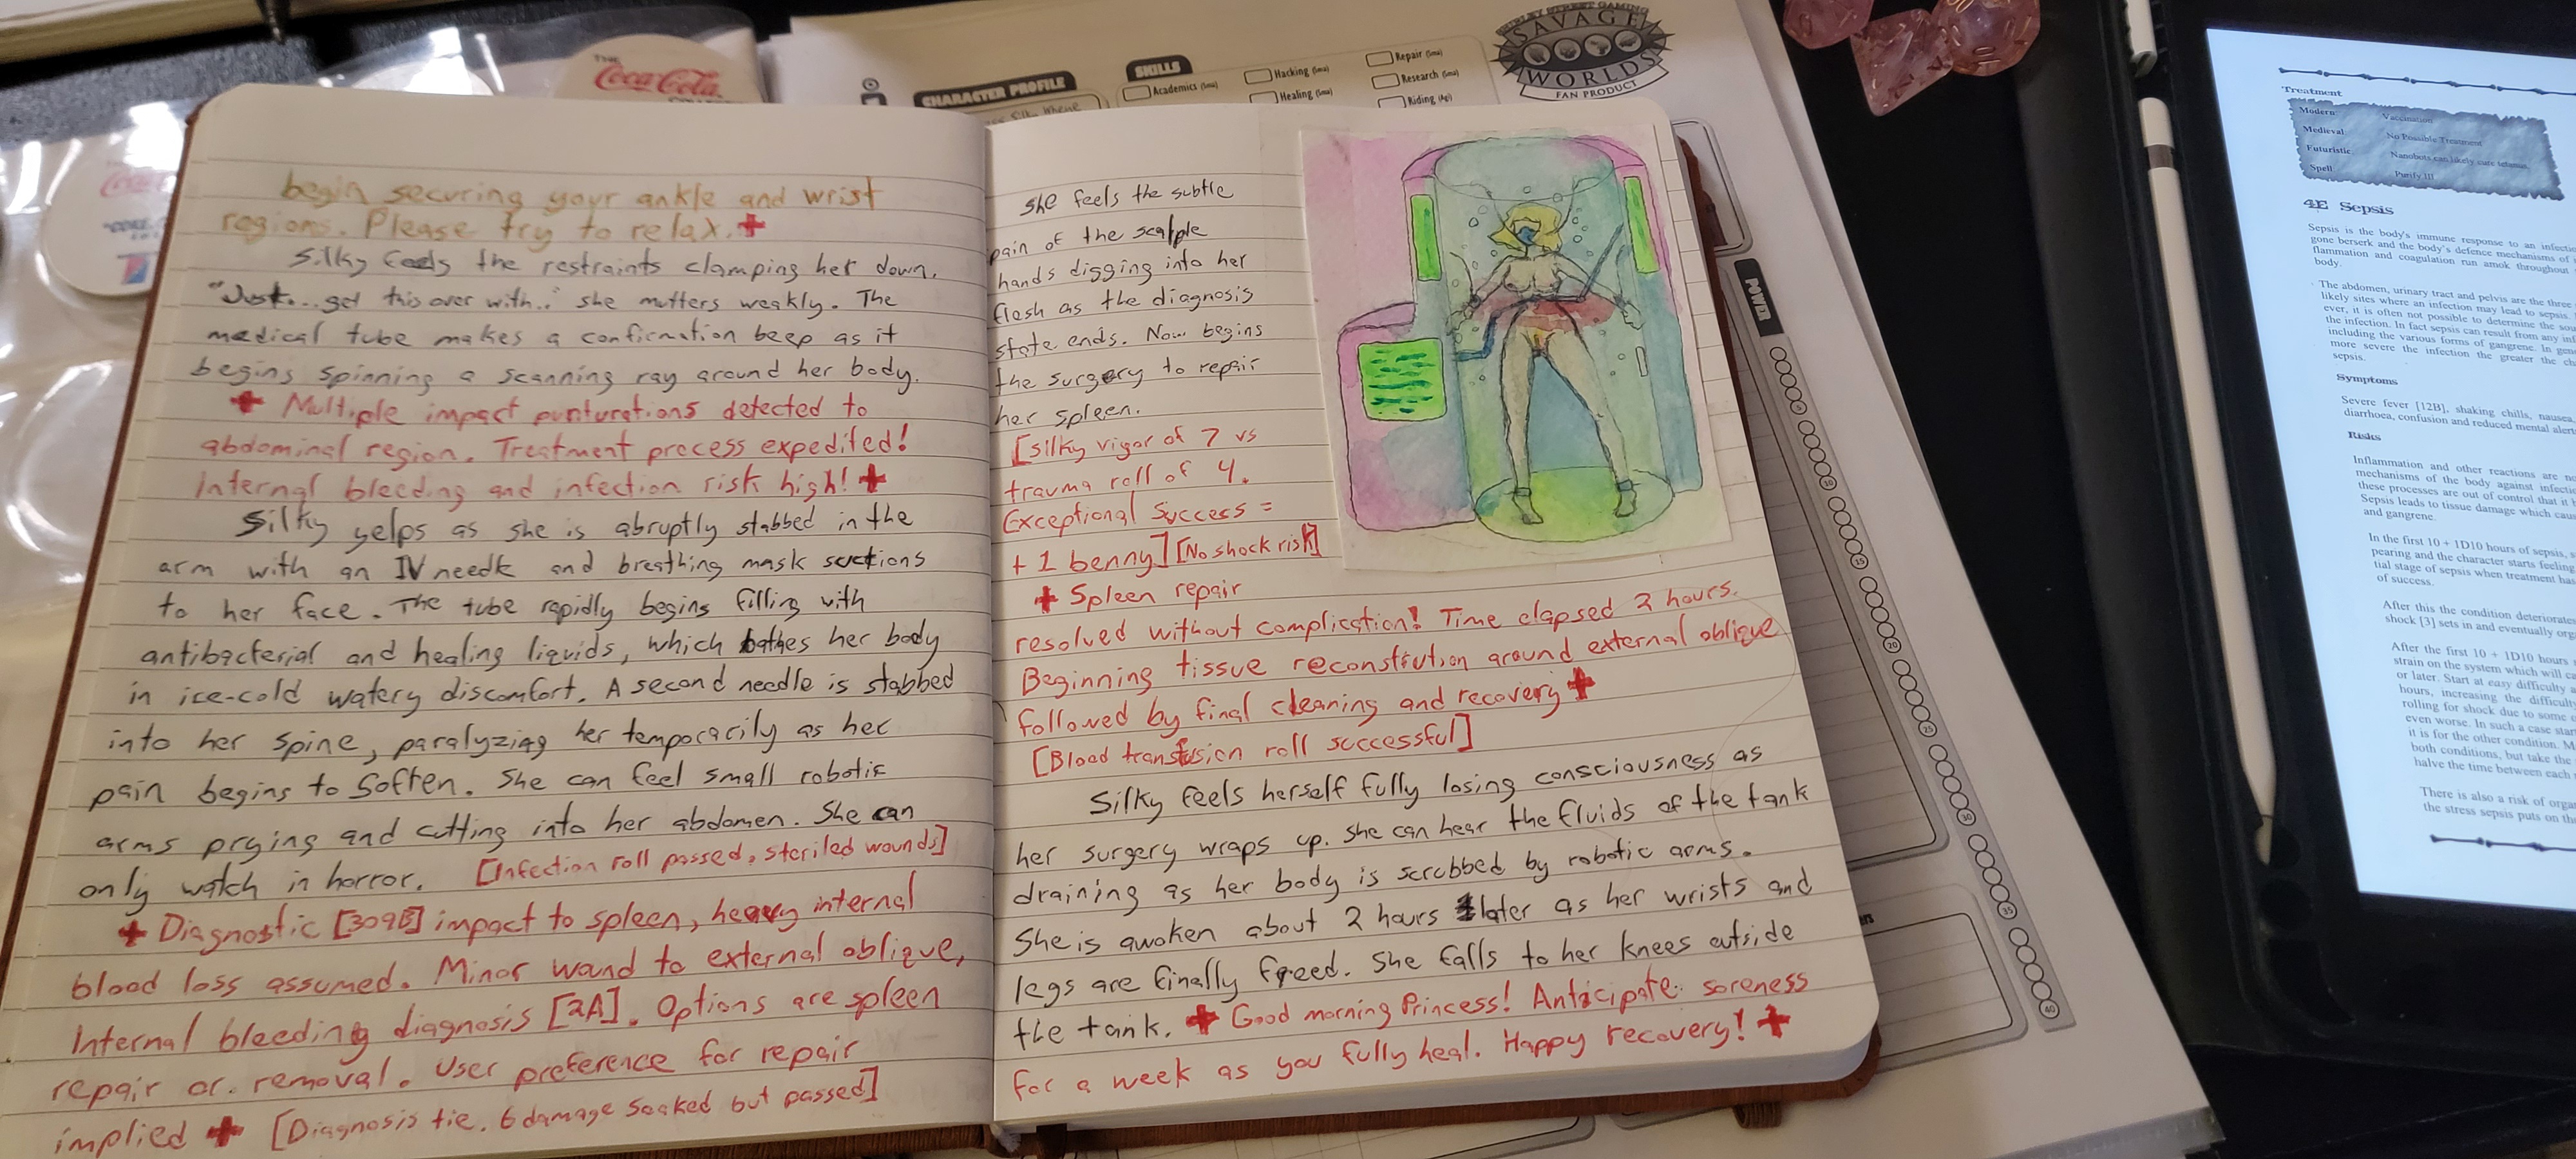 begin securing your ankle and wrist
regions. Please try to relax. +
Silky feels the restraints clamping her down.
"Just... get this over with.." she mutters weakly. The
medical tube makes a confirmation beep as it
begins spinning a scanning ray around her body.
+ Multiple impact punturations detected to
abdominal region. Treatment process expedited!
Internal bleeding and infection risk high! +
Silky yelps as she is abruptly stabbed in the
arm with an IV needle and breathing mask suctions
to her face. The tube rapidly begins filling with
antibacterial and healing liquids, which bathes her body
in ice-cold watery discomfort. A second needle is stabbed
into her spine, paralyzing her temporarily as her
pain begins to soften. She can feel small robotic
arms prying and cutting into her abdomen. She can
only watch in horror. [Infection roll passed, steriled wounds]
+ Diagnostic [309B] impact to spleen, heavy internal
blood loss assumed. Minor wound to external oblique,
Internal bleeding diagnosis [2A]. Options are spleen
repair or removal. User preference for repair
implied + [Diagnosis tie. 6 damage soaked but passed]
she feels the subtle
pain of the scalple
hands digging into her
flesh as the diagnosis
state ends. Now begins
the surgery to repair
her spleen.
[Silky vigor of 7 vs
trauma roll of 4.
Exceptional Success =
+ 1 benny] [No shock risk]
+ Spleen repair
resolved without complication! Time elapsed 2 hours.
Beginning tissue reconstrution around external oblique
followed by final cleaning and recovery +
[Blood transfusion roll successful]
Silky feels herself fully losing consciousness as
her surgery wraps up. She can hear the fluids of the tank
draining as her body is scrubbed by robotic arms.
She is awoken about 2 hours later as her wrists and
legs are finally freed. She falls to her knees outside
the tank. + Good morning Princess! Anticipate soreness
for a week as you fully heal. Happy recovery! +
THE
Coca-Cola
CHARACTER PROFILE
SKILLS
Academics (Sma)
Hacking (Sma)
Healing (Sma)
Repair (Sma)
Research (Sma)
Riding (Agi)
SAVAGE
WORLDS
FAN PRODUCT
POWER
5
10
15
20
25
30
35
40
Treatment
Modern: Vaccination
Medieval: No Possible Treatment
Futuristic: Nanobots can likely cure tetanus.
Spell: Purify III
4E Sepsis
Sepsis is the body's immune response to an
gone berserk and the body's defence mechanisms of
flammation and coagulation run amok throughout
body.
The abdomen, urinary tract and pelvis are the three
likely sites where an infection may lead to sepsis.
ever, it is often not possible to determine the
the infection. In fact sepsis can result from any
including the various forms of gangrene. In
more severe the infection the greater the
sepsis.
Symptoms
Severe fever [12B], shaking chills, nausea,
diarrhoea, confusion and reduced mental
Risks
Inflammation and other reactions are
mechanisms of the body against
these processes are out of control that it
Sepsis leads to tissue damage which
and gangrene.
In the first 10 + 1D10 hours of sepsis,
pearing and the character starts feeling
tial stage of sepsis when treatment has
of success.
After this the condition deteriorates
shock [3] sets in and eventually
After the first 10 + 1D10 hours
strain on the system which will
or later. Start at easy difficulty
hours, increasing the difficulty
rolling for shock due to some
even worse. In such a case
it is for the other condition.
both conditions, but take the
halve the time between each
There is also a risk of
the stress sepsis puts on